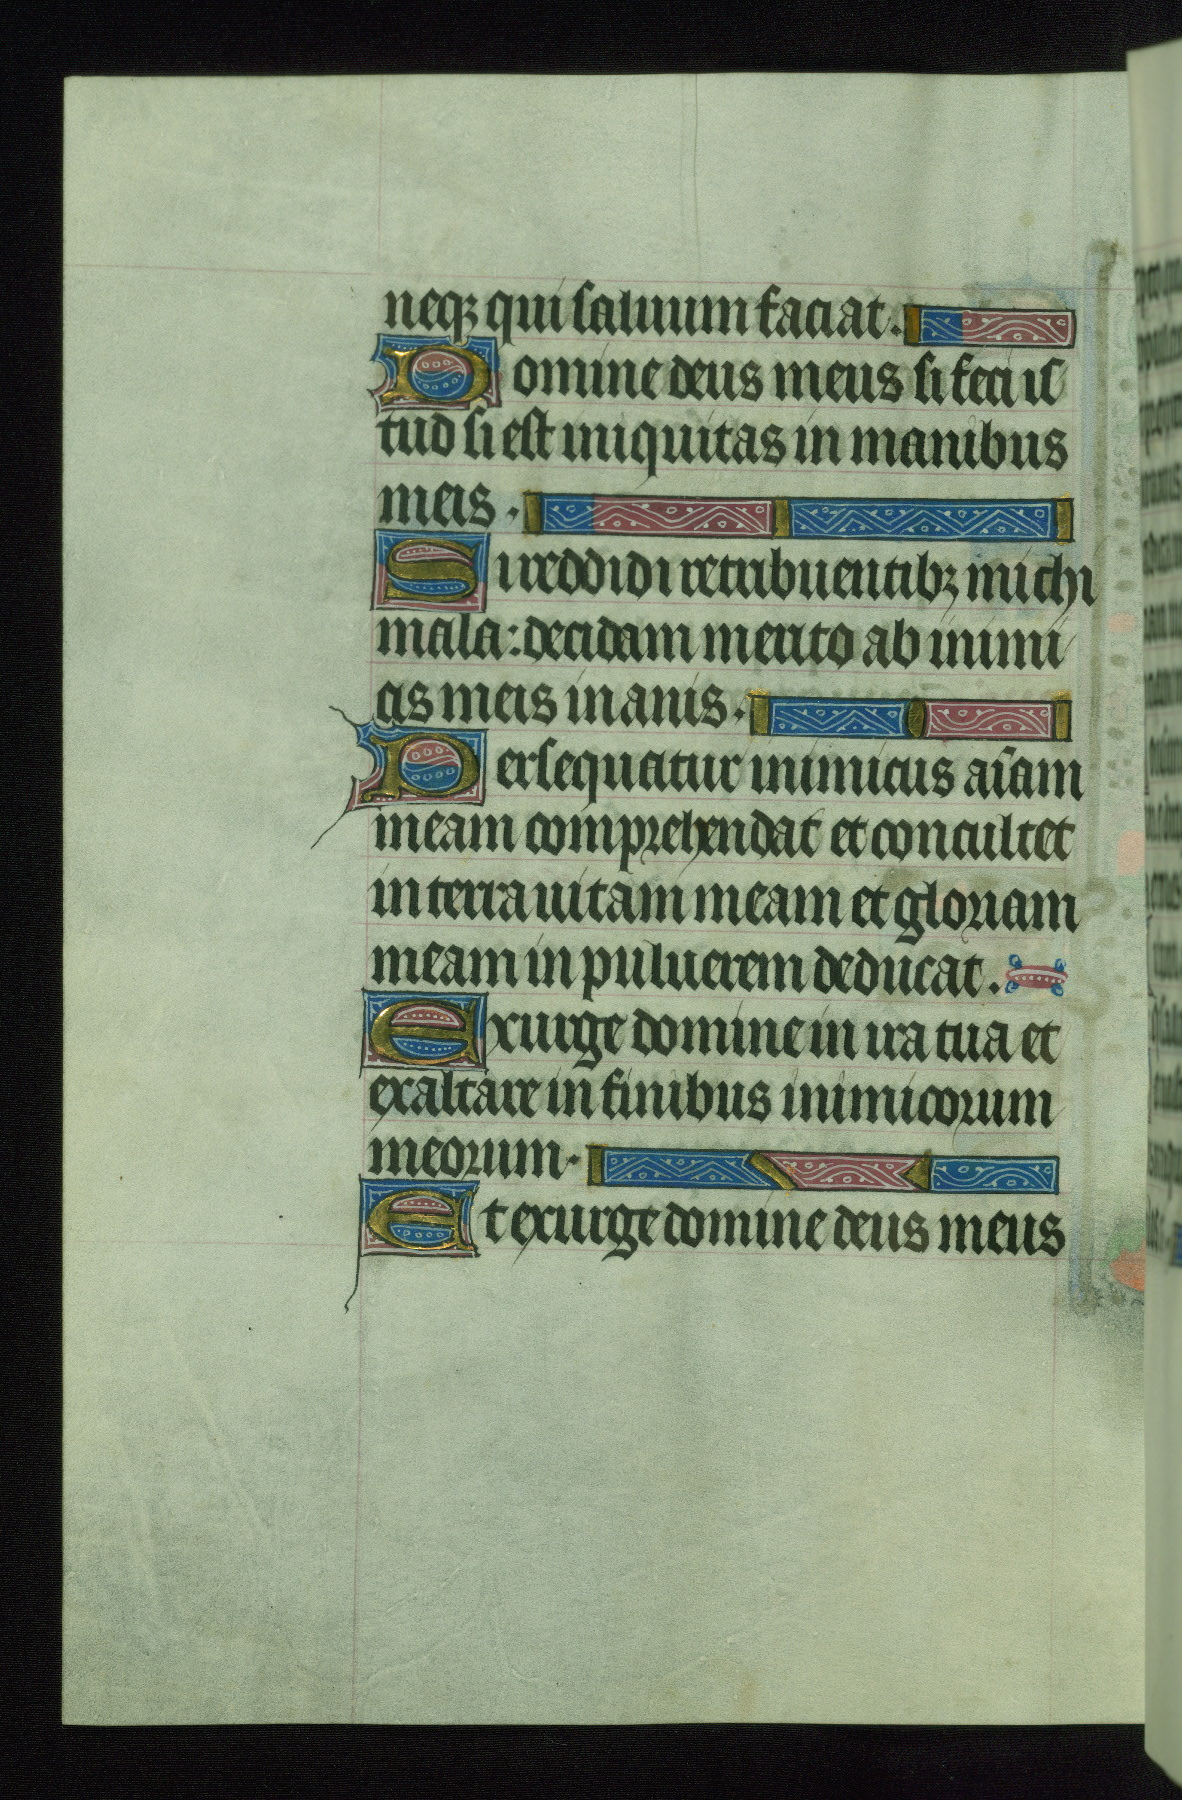 neqꝫ qui saluum faciat.
Domine deus meus si feci is
tud si est iniquitas in manibus
meis.
Si reddidi retribuentibꝫ michi
mala: decidam merito ab inimi
cis meis inanis.
Persequatur inimicus aīam
meam comprehendat et conculcet
in terra uitam meam et gloriam
meam in puluerem deducat.
Exurge domine in ira tua et
exaltare in finibus inimicorum
meorum.
Et exurge domine deus meus